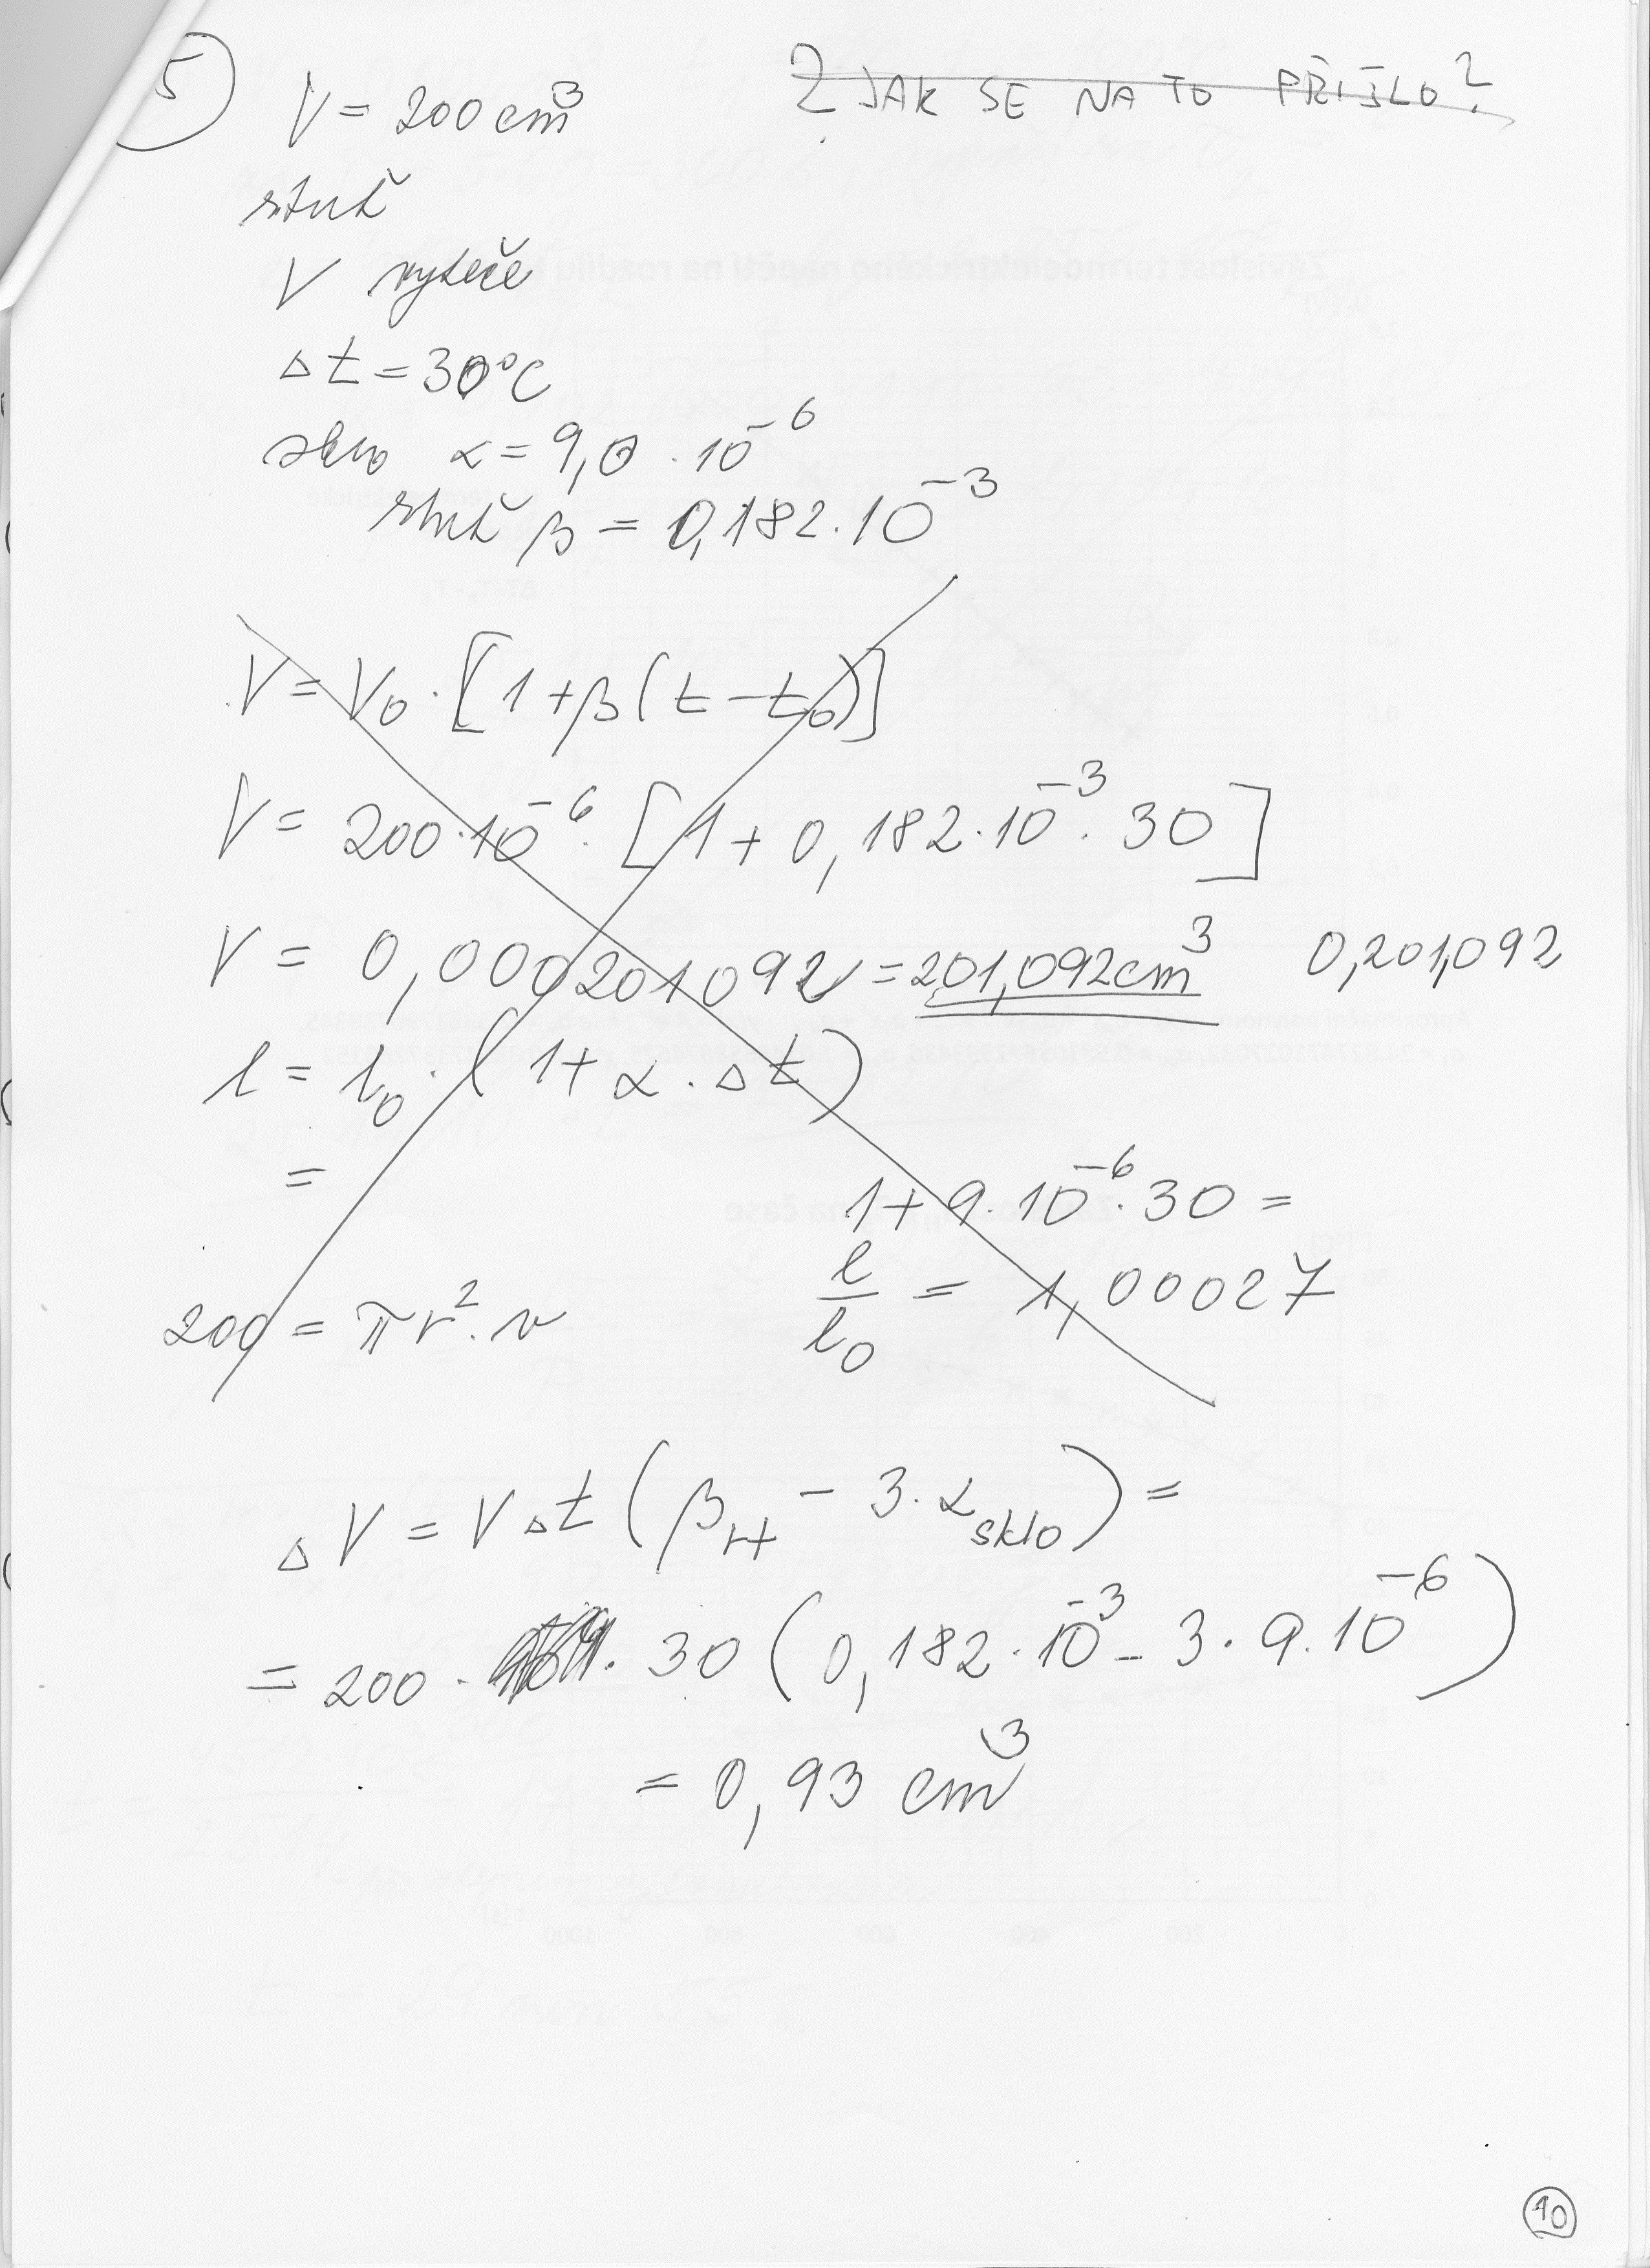 5
V = 200 cm³
? JAK SE NA TO PŘIŠLO?
rtuť
V vyteče
Δt = 30°C
sklo α = 9,0 · 10⁻⁶
rtuť β = 0,182 · 10⁻³
V = V₀ · [1 + β(t - t₀)]
V = 200 · 10⁻⁶ · [1 + 0,182 · 10⁻³ · 30]
V = 0,000201092 = 201,092 cm³ 0,201,092
l = l₀ · (1 + α · Δt)
=
1 + 9 · 10⁻⁶ · 30 =
l/l₀ = 1,00027
200 = πr² · v
ΔV = VΔt(β_rt - 3 · α_sklo) =
= 200 · 30 (0,182 · 10⁻³ - 3 · 9 · 10⁻⁶)
= 0,93 cm³
10